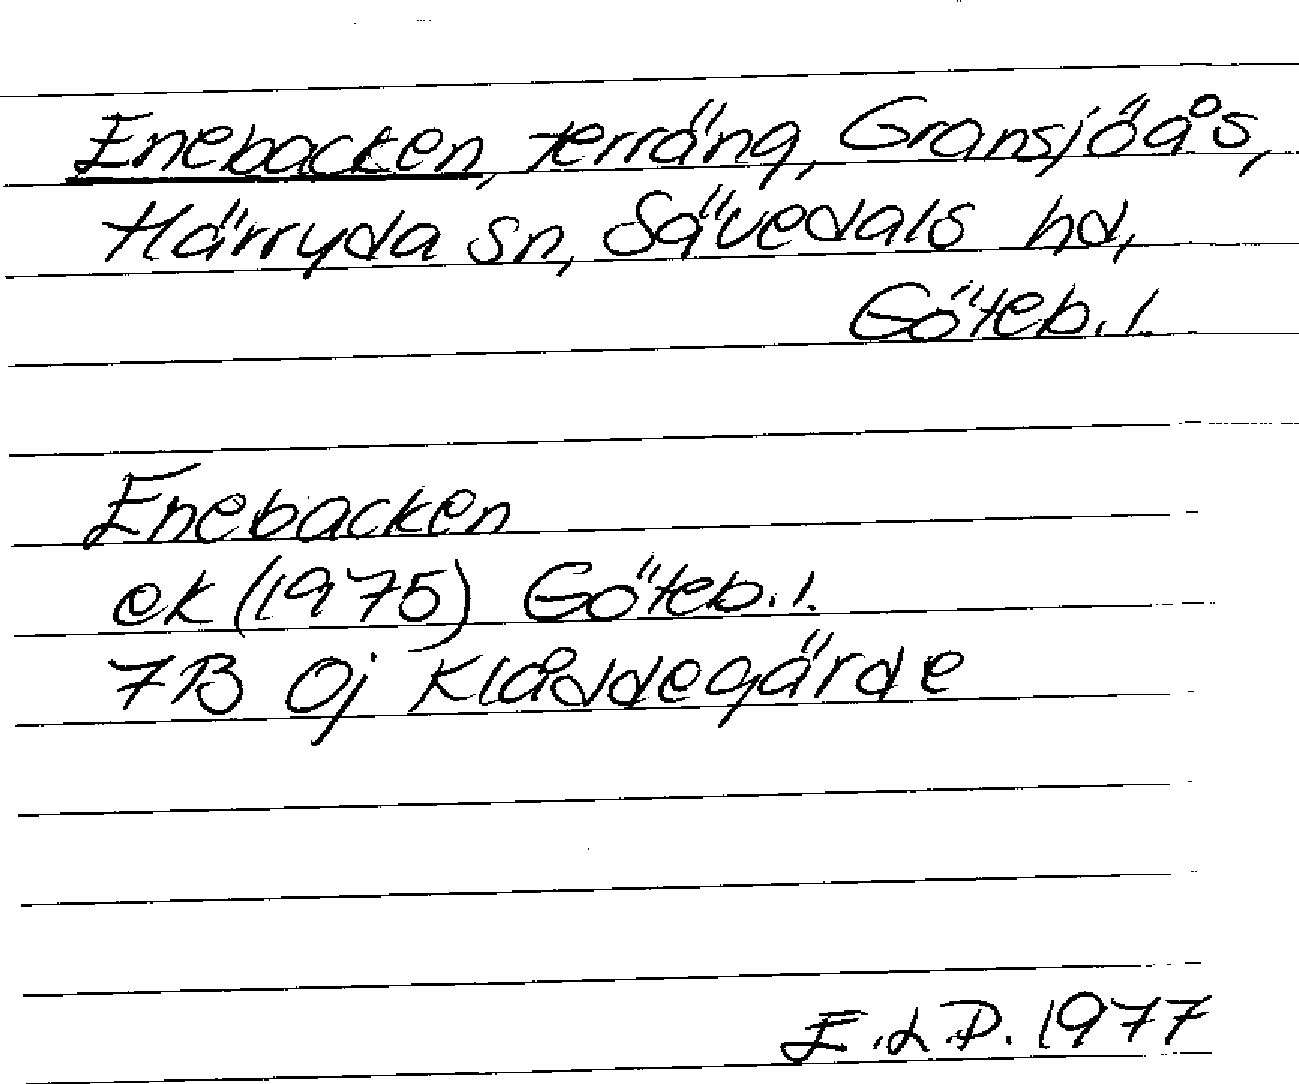 Enebacken, terräng, Gransjöås,
Härryda sn, Sävedals hd,
Göteb. l.
Enebacken
ek (1975) Göteb. l.
7B 0j Klåddegärde
E.L.P. 1977